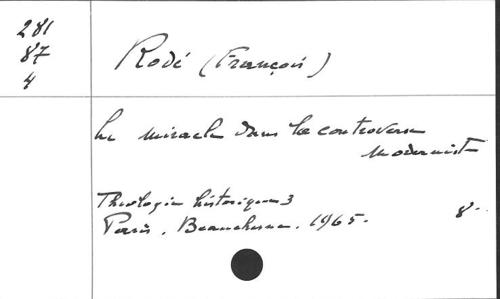 281
87
4
Rodé (François)
Le miracle dans la controverse
moderniste
Théologie historique 3
Paris, Beauchesne, 1965.
8°